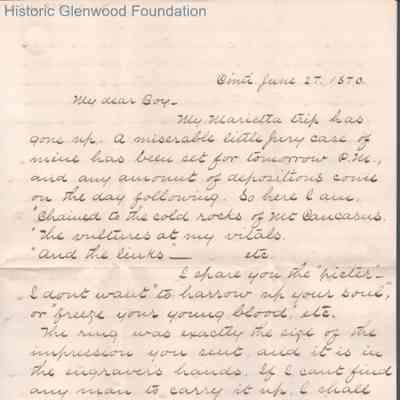 Historic Glenwood Foundation
Cinti June 27. 1870.
My dear Boy-
My Marietta trip has
gone up. A miserable little Jury case of
mine has been set for tomorrow P.M.,
and any amount of depositions come
on the day following. So here I am.
"Chained to the cold rocks of Mt Caucasus.
"The vultures at my vitals.
"And the links" — etc.
I spare you the "picter"-
I dont want "to harrow up your soul",
or "freeze your young blood," etc.
The ring was exactly the size of the
impression you sent, and it is in
the engravers hands. If I cant find
any man to carry it up, I shall